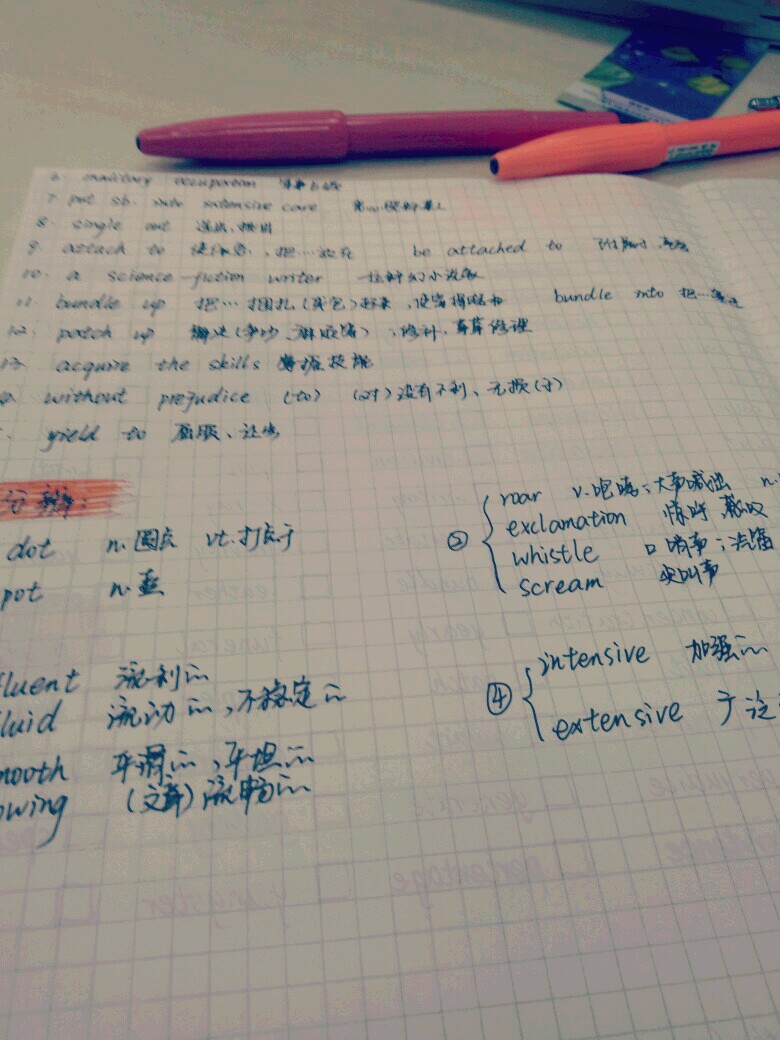 6. military occupation 军事占领
7. put sb. into intensive care
8. single out 选出,挑出
9. attach to 使依恋,把…放在 be attached to 附属于,
10. a science-fiction writer 一位科幻小说家
11. bundle up 把…捆扎(或包)起来,使穿得暖和 bundle into 把…
12. patch up 解决(争吵、麻烦等);修补,草草修理
13. acquire the skills 掌握技能
without prejudice (to) (对)没有不利、无损(于)
yield to 屈服、让步
分辨:
dot n.圆点 vt.打点于
② roar v.咆哮;大声喊出 n.
exclamation 惊呼 感叹
pot n.壶
whistle 口哨声;汽笛
scream 尖叫声
fluent 流利的
fluid 流动的,不稳定的
④ intensive 加强的
extensive 广泛
smooth 平滑的,平坦的
flowing (文章)流畅的